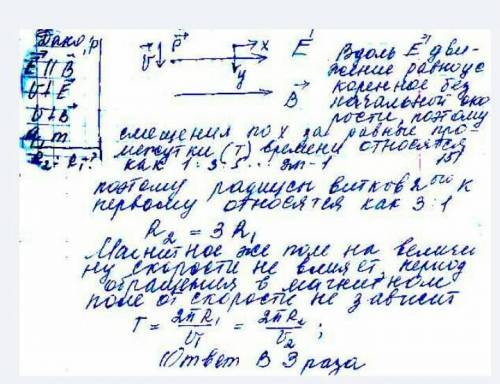 Дано: p
E ∥ B
v ⊥ E
v ⊥ B
m
R₂ : R₁ - ?
v p x E
y
B
Вдоль E дви-
жение равноус
коренное без
начальной ско
рости, поэтому
смещения по x за равные про
межутки (T) времени относятся
как 1:3:5... 2n-1
поэтому радиусы витков к
первому относятся как 3:1
R₂ = 3R₁
Магнитное же поле на величи
ну скорости не влияет, период
обращения в магнитном
поле от скорости не зависит
T = 2πR₁/v₁ = 2πR₂/v₂ ;
Ответ В 3 раза